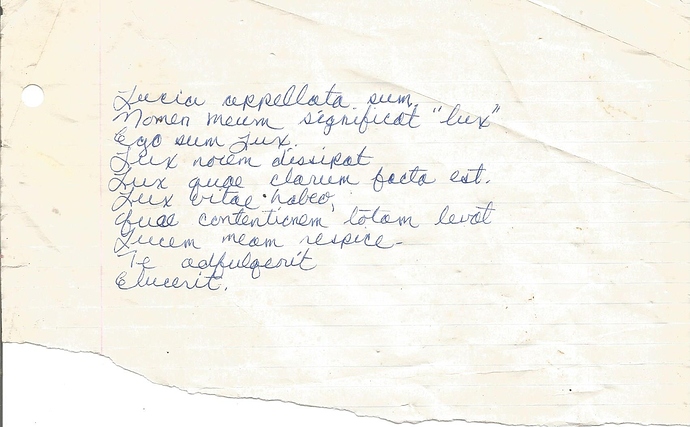 Lucia appellata sum.
Nomen meum significat "lux"
Ego sum Lux.
Lux noxem dissipat
Lux quae clarum facta est.
Lux vitae habeo,
quae contentionem totam levat
Lucem meam respice-
Te adfulgerit
Elucerit.